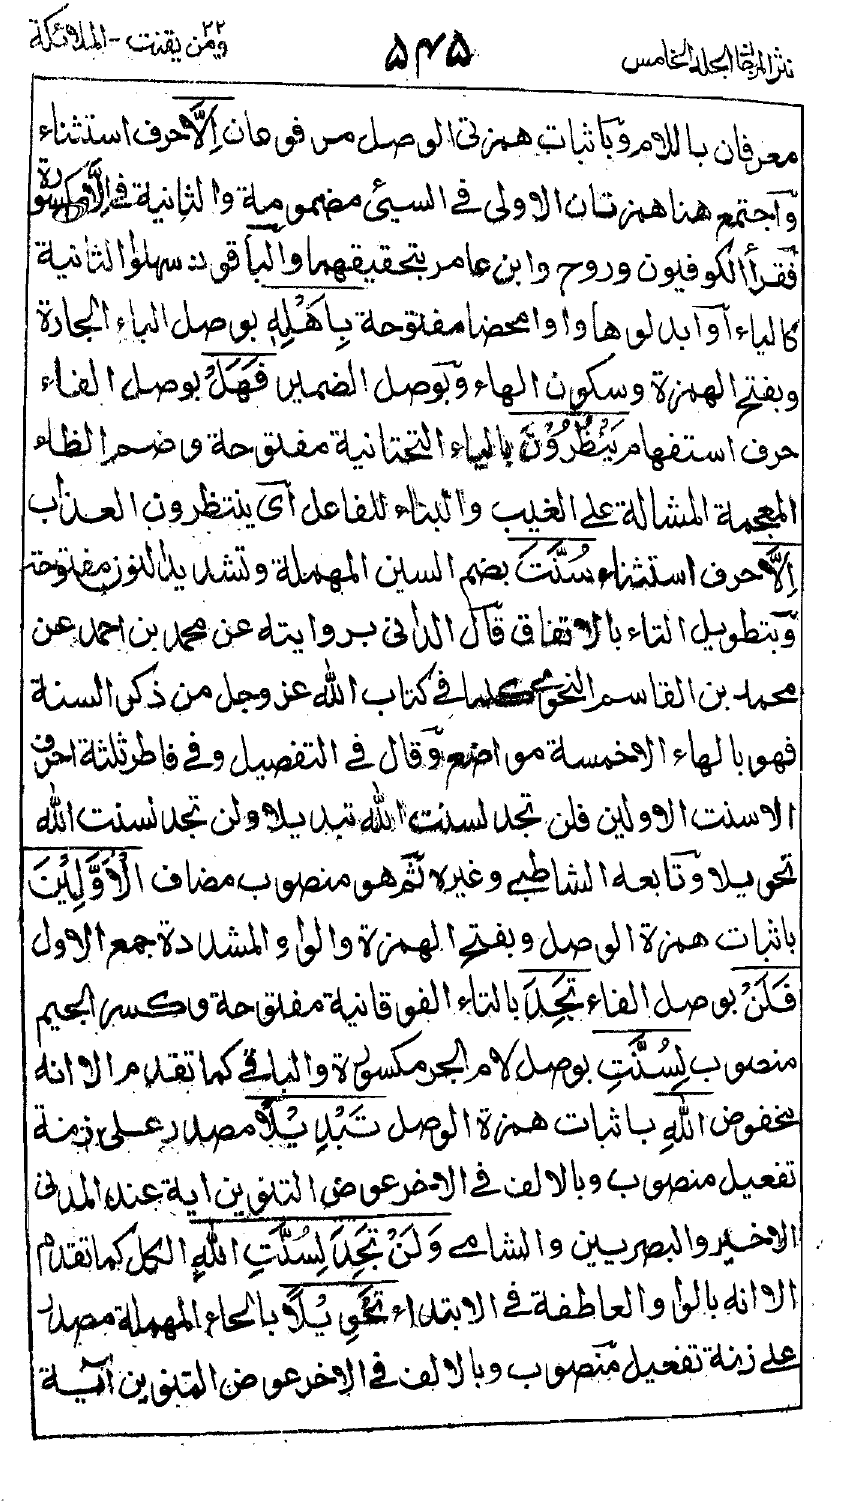 نثر المرجان الجلد الخامس
٥٤٥
ومن يقنت ٢٢ - الملائكة
معرفان باللام وباثبات همزتى الوصل مرفوعان اِلَّا حرف استثناء
واجتمع هنا همزتان الاولى فى السيئ مضمومة والثانية فى الا مكسورة
فقرأ الكوفيون وروح وابن عامر بتحقيقهما والباقون سهلوا الثانية
كالياء او ابدلوها واوا محضا مفتوحة بِاَهْلِهٖ بوصل الباء الجارة
وبفتح الهمزة وسكون الهاء وبوصل الضمير فَهَلْ بوصل الفاء
حرف استفهام يَنْظُرُوْنَ بالياء التحتانية مفتوحة وضم الظاء
المعجمة المشالة على الغيب والبناء للفاعل اى ينتظرون العذاب
اِلَّا حرف استثناء سُنَّتَ بضم السين المهملة وتشديد النون مفتوحة
وبتطويل التاء بالاتفاق قال الدانى بروايته عن محمد بن احمد عن
محمد بن القاسم النحوى كلما فى كتاب الله عز وجل من ذكر السنة
فهو بالهاء الا خمسة مواضع وقال فى التفصيل وفى فاطر ثلثة احرف
الا سنت الاولين فلن تجد لسنت الله تبديلا ولن تجد لسنت الله
تحويلا وتابعه الشاطبى وغيره ثم هو منصوب مضاف الْاَوَّلِيْنَ
باثبات همزة الوصل وبفتح الهمزة والواو المشددة جمع الاول
فَلَنْ بوصل الفاء تَجِدَ بالتاء الفوقانية مفتوحة وكسر الجيم
منصوب لِسُنَّتِ بوصل لام الجر مكسورة والباقى كما تقدم الا انه
مخفوض اللّٰهِ باثبات همزة الوصل تَبْدِيْلًا مصدر على زنة
تفعيل منصوب وبالالف فى الاخر عوض التنوين اية عند المدنى
الاخير والبصريين والشامى وَلَنْ تَجِدَ لِسُنَّتِ اللّٰهِ الكل كما تقدم
الا انه بالواو العاطفة فى الابتداء تَحْوِيْلًا بالحاء المهملة مصدر
على زنة تفعيل منصوب وبالالف فى الاخر عوض التنوين اٰية